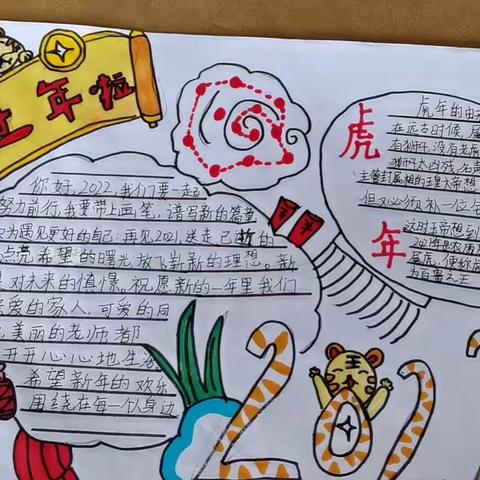 过年啦
你好,2022,我们要一起
努力前行,我要带上画笔,谱写新的篇章
为遇见更好的自己;再见2021送走已的
点亮希望的曙光,放飞崭新的理想。新
对未来的憧憬。祝愿新的一年里我们
亲爱的家人,可爱的同
美丽的老师都
开开心心地生活
希望新年的欢乐
围绕在每一个人身边
虎年
虎年的由
在远古时候,属
有狮子,没有老虎
狮子太凶残,名声
主管封属相的玉皇大帝想
但又必须补一位
这时玉帝想到
为百兽之王
王
202